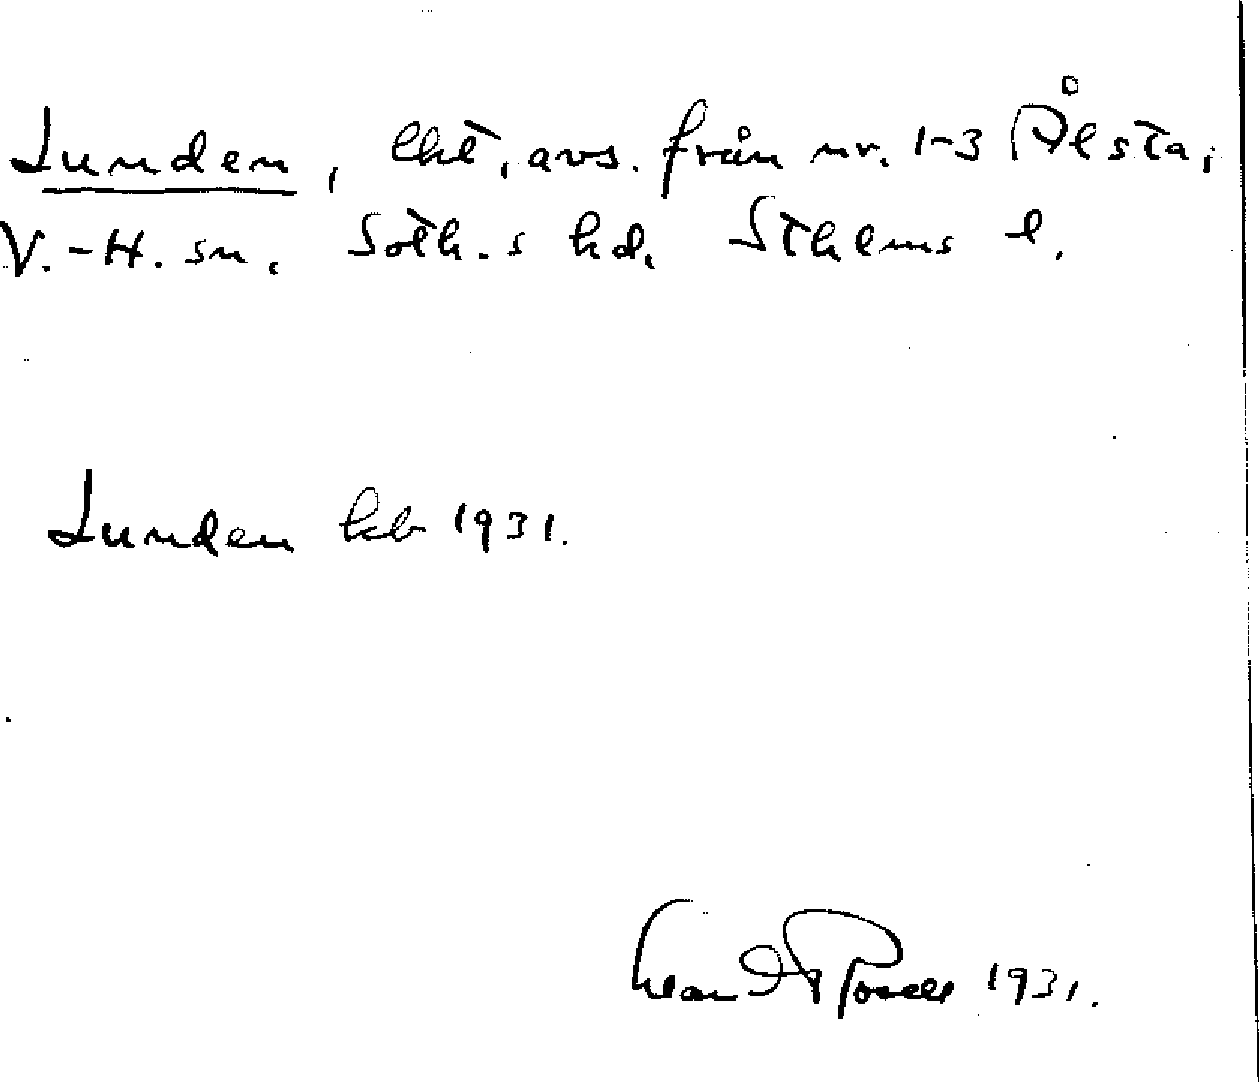 Lunden, lht, avs. från nr. 1-3 Ålsta,
V.-H. sn. Soth.s hd. Sthlms l.
Lunden kb 1931.
1931.